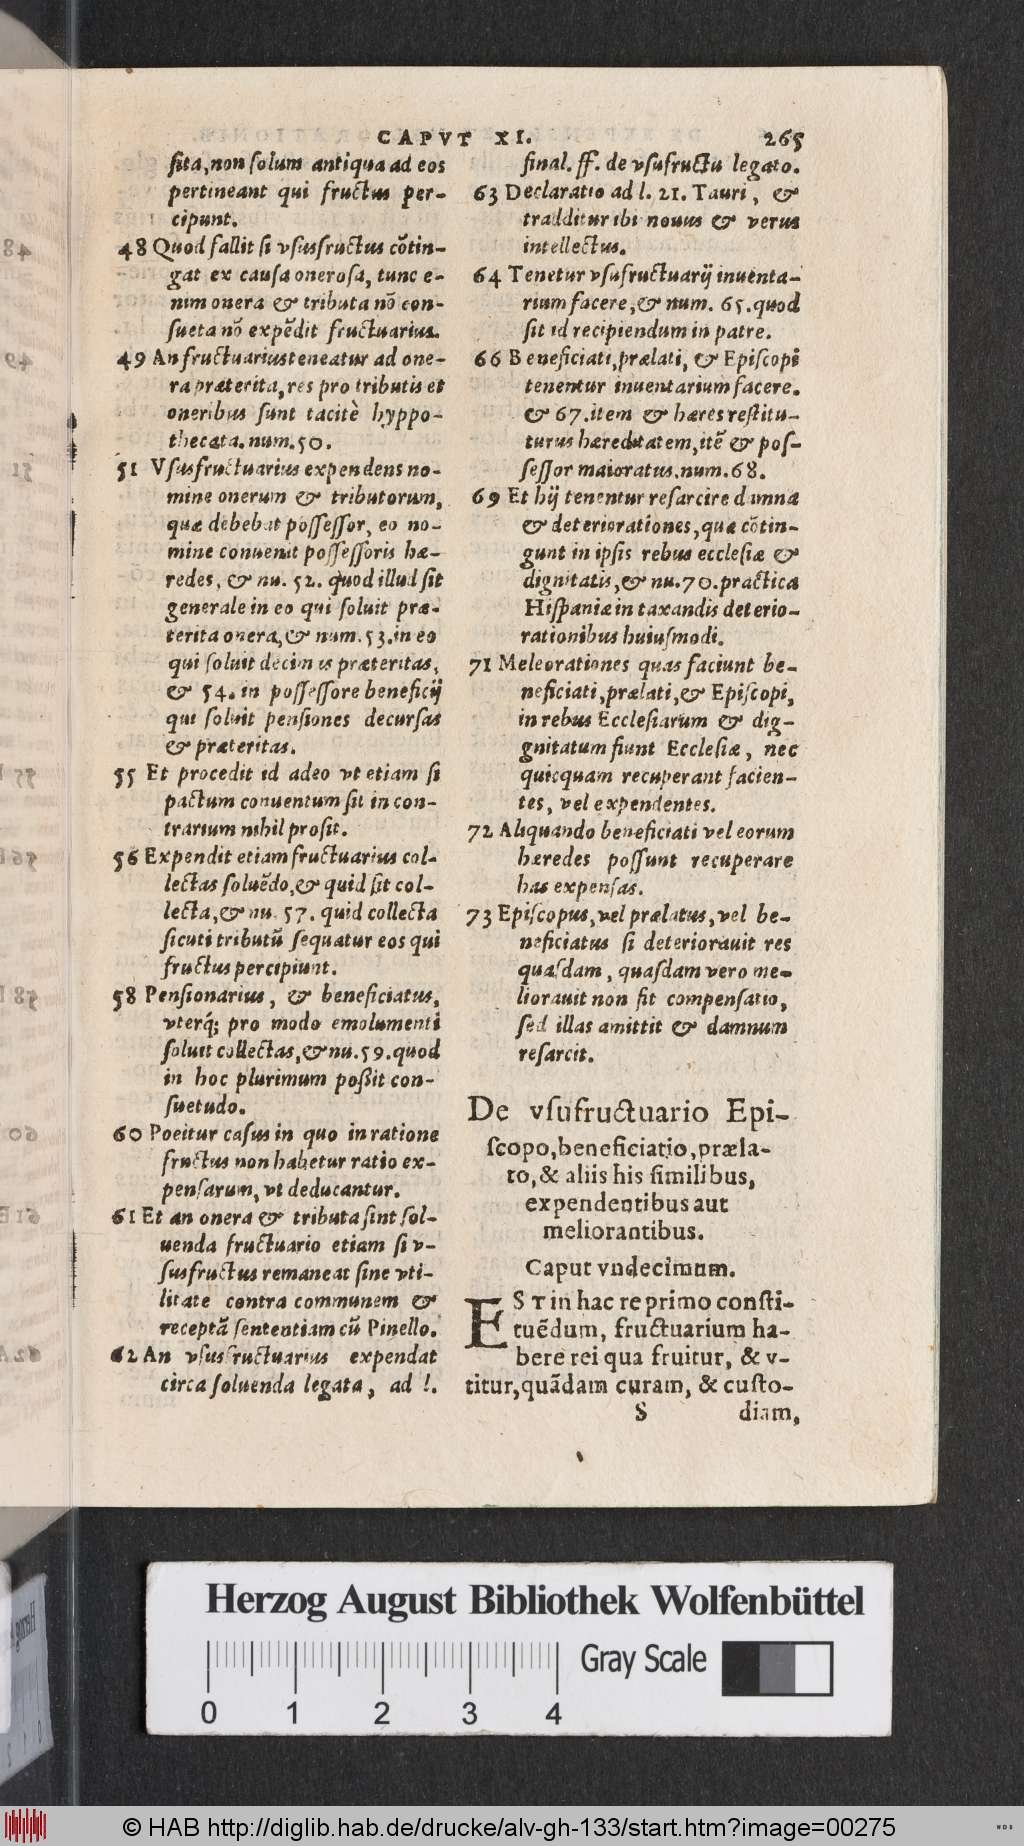 CAPVT XI. 265
ſita, non ſolum antiqua ad eos
pertineant qui fructus per-
cipunt.
48 Quod fallit ſi vſusfructus cõtin-
gat ex cauſa oneroſa, tunc e-
nim onera & tributa nõ con-
ſueta nõ expẽdit fructuarius.
49 An fructuarius teneatur ad one-
ra præterita, res pro tributis et
oneribus ſunt tacitè hyppo-
thecata. num. 50.
51 Vſusfructuarius expendens no-
mine onerum & tributorum,
quæ debebat poſſeſſor, eo no-
mine conuenit poſſeſſoris hæ-
redes, & nu. 52. quod illud ſit
generale in eo qui ſoluit præ-
terita onera, & num. 53. in eo
qui ſoluit decimas præteritas,
& 54. in poſſeſſore beneficij
qui ſoluit penſiones decurſas
& præteritas.
55 Et procedit id adeo vt etiam ſi
pactum conuentum ſit in con-
trarium nihil proſit.
56 Expendit etiam fructuarius col-
lectas ſoluẽdo, & quid ſit col-
lecta, & nu. 57. quid collecta
ſicuti tributũ ſequatur eos qui
fructus percipiunt.
58 Penſionarius, & beneficiatus,
vterq́; pro modo emolumenti
ſoluit collectas, & nu. 59. quod
in hoc plurimum poßit con-
ſuetudo.
60 Poeitur caſus in quo in ratione
fructus non habetur ratio ex-
penſarum, vt deducantur.
61 Et an onera & tributa ſint ſol-
uenda fructuario etiam ſi v-
ſusfructus remaneat ſine vti-
litate contra communem &
receptã ſententiam cũ Pinello.
62 An vſusfructuarius expendat
circa ſoluenda legata, ad l.
final. ff. de vſufructu legato.
63 Declaratio ad l. 21. Tauri, &
tradditur ibi nouus & verus
intellectus.
64 Tenetur vſufructuarij inuenta-
rium facere, & num. 65. quod
ſit id recipiendum in patre.
66 Beneficiati, prælati, & Epiſcopi
tenentur inuentarium facere.
& 67. item & hæres reſtitu-
turus hæreditatem, itẽ & poſ-
ſeſſor maioratus. num. 68.
69 Et hij tenentur reſarcire damna
& deteriorationes, quæ cõtin-
gunt in ipſis rebus eccleſiæ &
dignitatis, & nu. 70. practica
Hiſpaniæ in taxandis deterio-
rationibus huiuſmodi.
71 Meleorationes quas faciunt be-
neficiati, prælati, & Epiſcopi,
in rebus Eccleſiarum & dig-
gnitatum fiunt Eccleſiæ, nec
quicquam recuperant facien-
tes, vel expendentes.
72 Aliquando beneficiati vel eorum
hæredes poſſunt recuperare
has expenſas.
73 Epiſcopus, vel prælatus, vel be-
neficiatus ſi deteriorauit res
quaſdam, quaſdam vero me-
liorauit non fit compenſatio,
ſed illas amittit & damnum
reſarcit.
De vſufructuario Epi-
ſcopo, beneficiatio, præla-
to, & aliis his ſimilibus,
expendentibus aut
meliorantibus.
Caput vndecimum.
EST in hac re primo conſti-
tuẽdum, fructuarium ha-
bere rei qua fruitur, & v-
titur, quãdam curam, & cuſto-
S diam,
Herzog August Bibliothek Wolfenbüttel
Gray Scale
0 1 2 3 4
© HAB http://diglib.hab.de/drucke/alv-gh-133/start.htm?image=00275